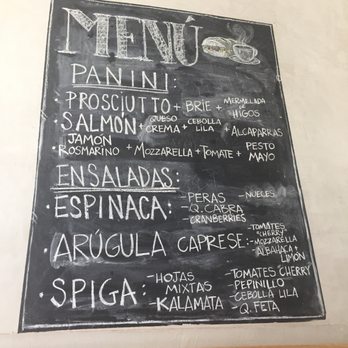 MENÚ
PANINI:
PROSCIUTTO + BRIE + MERMELADA DE HIGOS
SALMÓN + QUESO CREMA + CEBOLLA LILA + ALCAPARRAS
JAMÓN ROSMARINO + MOZZARELLA + TOMATE + PESTO MAYO
ENSALADAS:
· ESPINACA: - PERAS - NUECES
- Q. CABRA
- CRANBERRIES
· ARÚGULA CAPRESE: - TOMATES "CHERRY"
- MOZZARELLA
- ALBAHACA
LIMÓN
· SPIGA: - HOJAS MIXTAS
- KALAMATA
- TOMATES CHERRY
- PEPINILLO
- CEBOLLA LILA
- Q. FETA